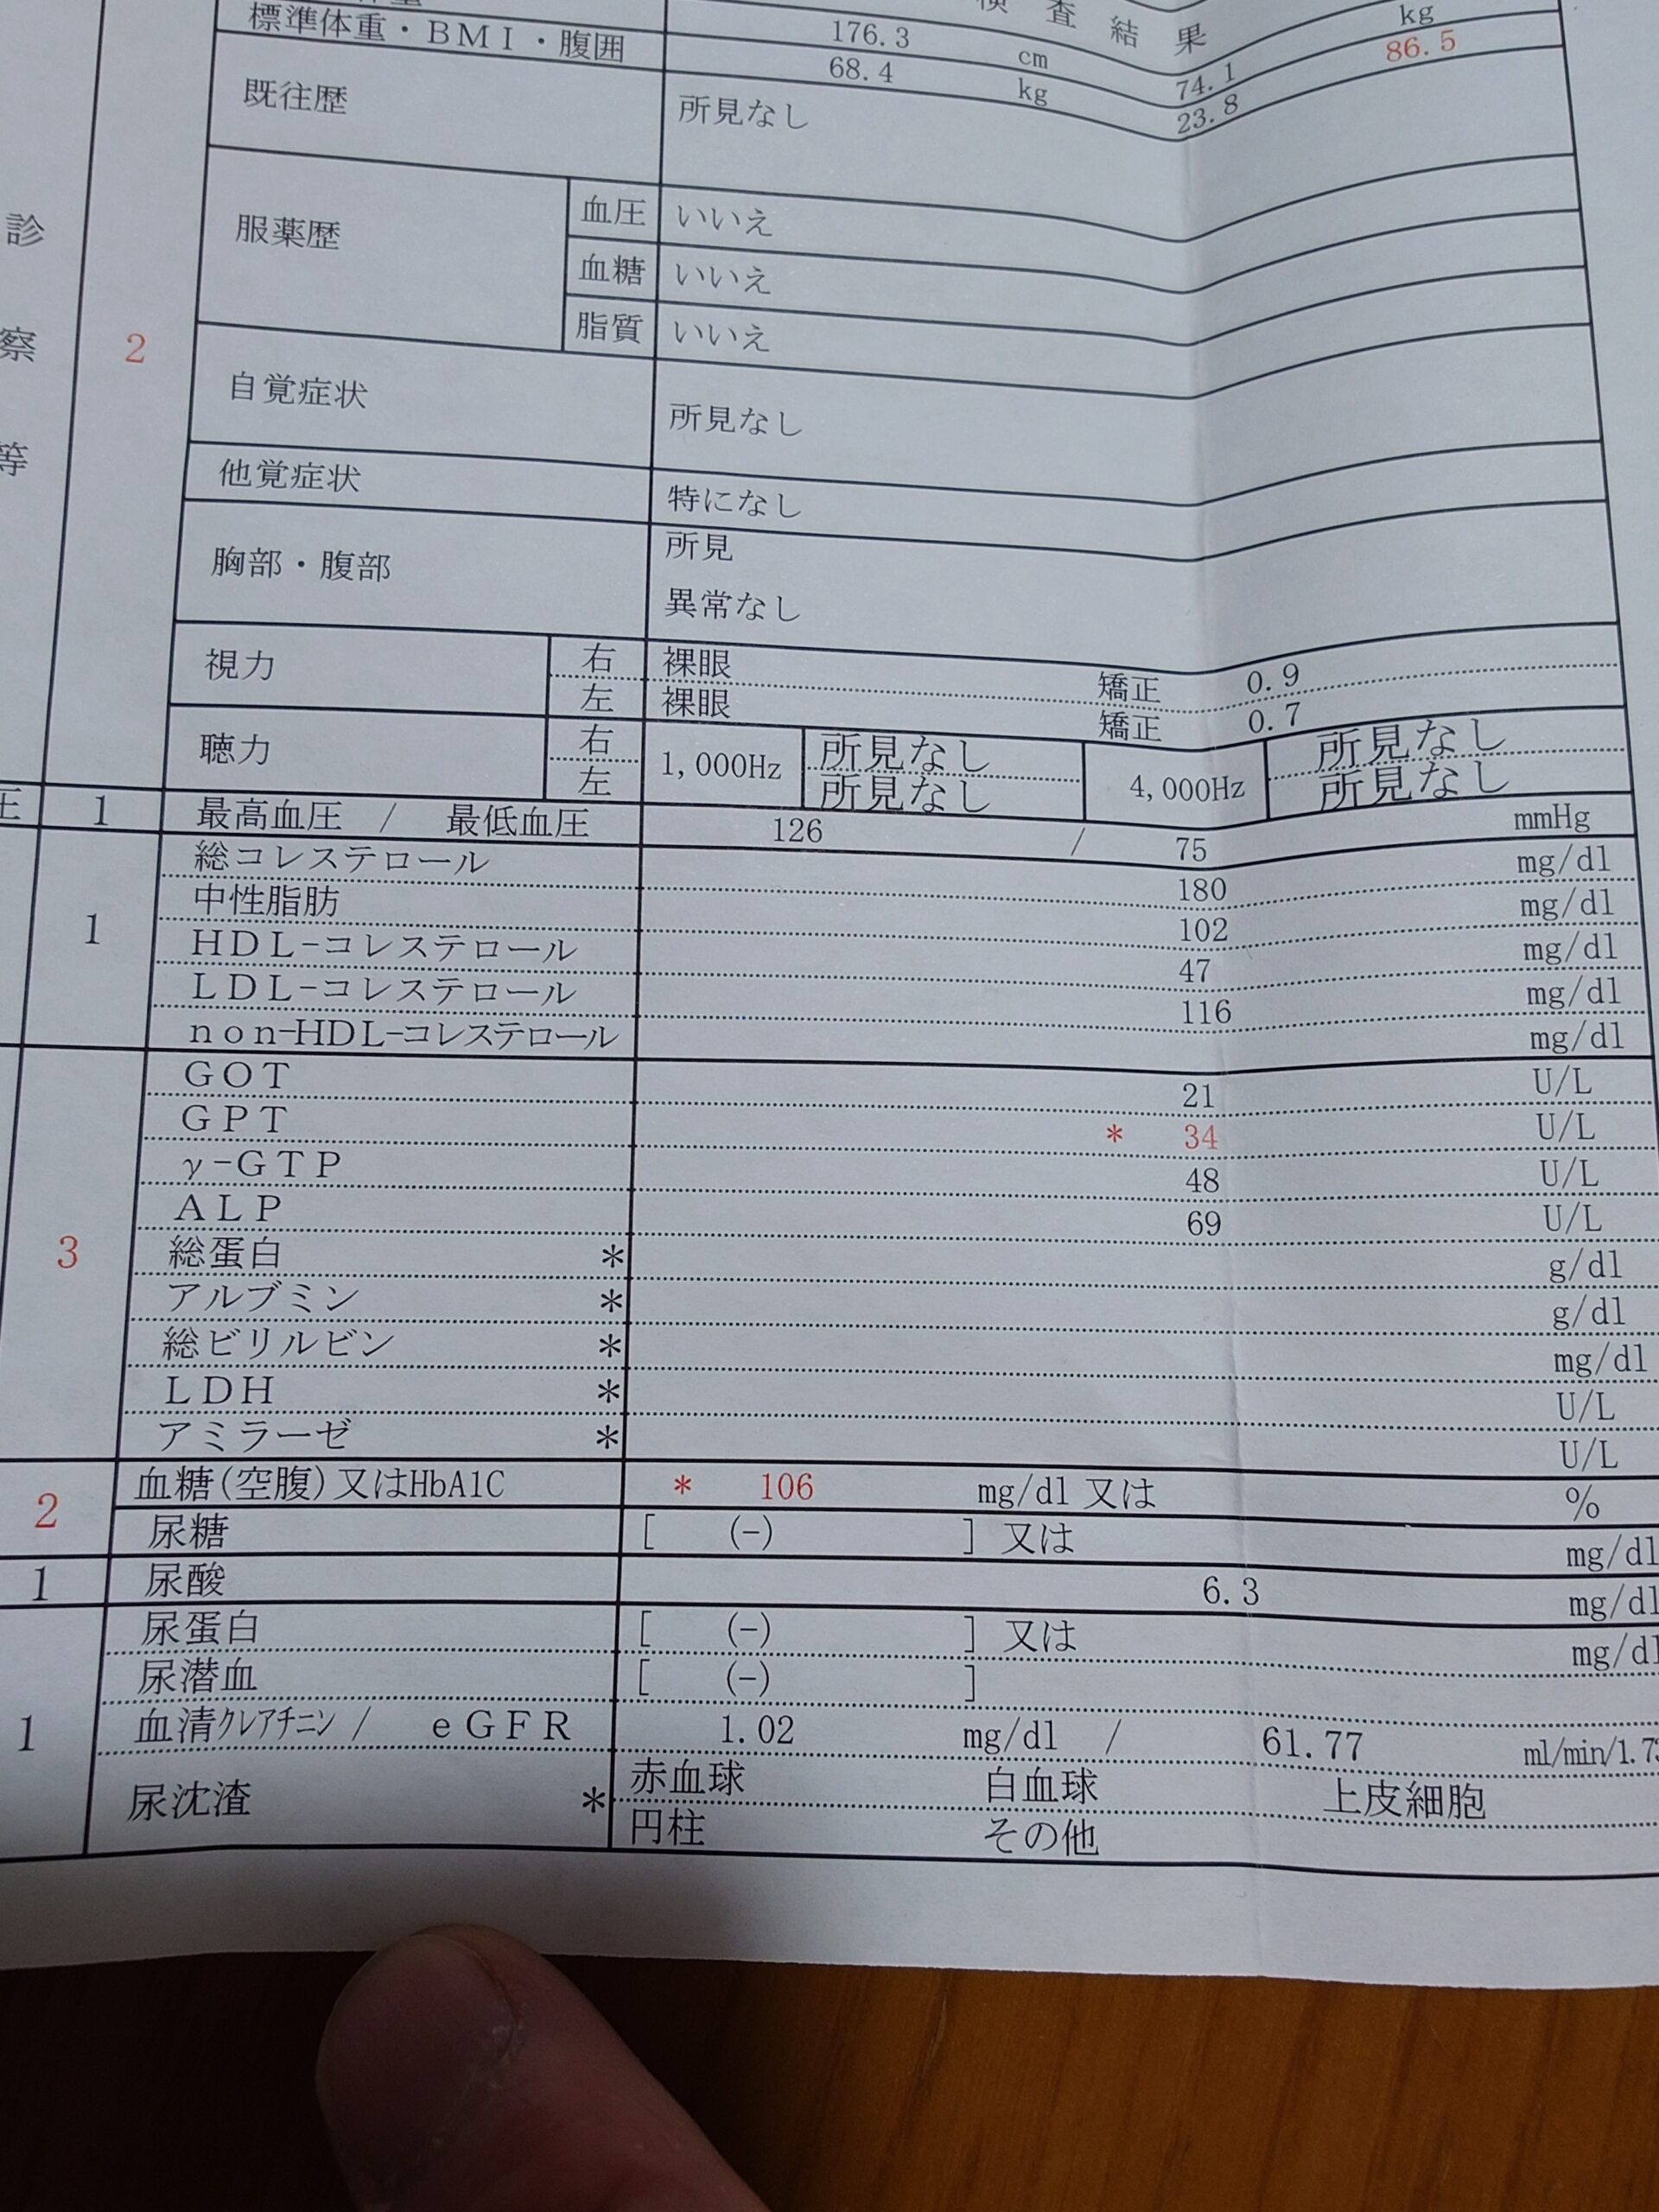 検査結果
176.3 cm 74.1 kg
標準体重・BMI・腹囲 68.4 kg 23.8 86.5
既往歴 所見なし
診察等 2
服薬歴 血圧 いいえ
血糖 いいえ
脂質 いいえ
自覚症状 所見なし
他覚症状 特になし
胸部・腹部 所見
異常なし
視力 右 裸眼 矯正 0.9
左 裸眼 矯正 0.7
聴力 右 1,000Hz 所見なし 4,000Hz 所見なし
左 所見なし 所見なし
圧 1 最高血圧 / 最低血圧 126 / 75 mmHg
総コレステロール 180 mg/dl
中性脂肪 102 mg/dl
1 HDL-コレステロール 47 mg/dl
LDL-コレステロール 116 mg/dl
non-HDL-コレステロール mg/dl
GOT 21 U/L
GPT * 34 U/L
γ-GTP 48 U/L
ALP 69 U/L
3 総蛋白 * g/dl
アルブミン * g/dl
総ビリルビン * mg/dl
LDH * U/L
アミラーゼ * U/L
2 血糖(空腹)又はHbA1C * 106 mg/dl 又は %
尿糖 [ (-) ] 又は mg/dl
1 尿酸 6.3 mg/dl
尿蛋白 [ (-) ] 又は mg/dl
尿潜血 [ (-) ]
1 血清クレアチニン / eGFR 1.02 mg/dl / 61.77 ml/min/1.73
尿沈渣 * 赤血球 白血球 上皮細胞
円柱 その他